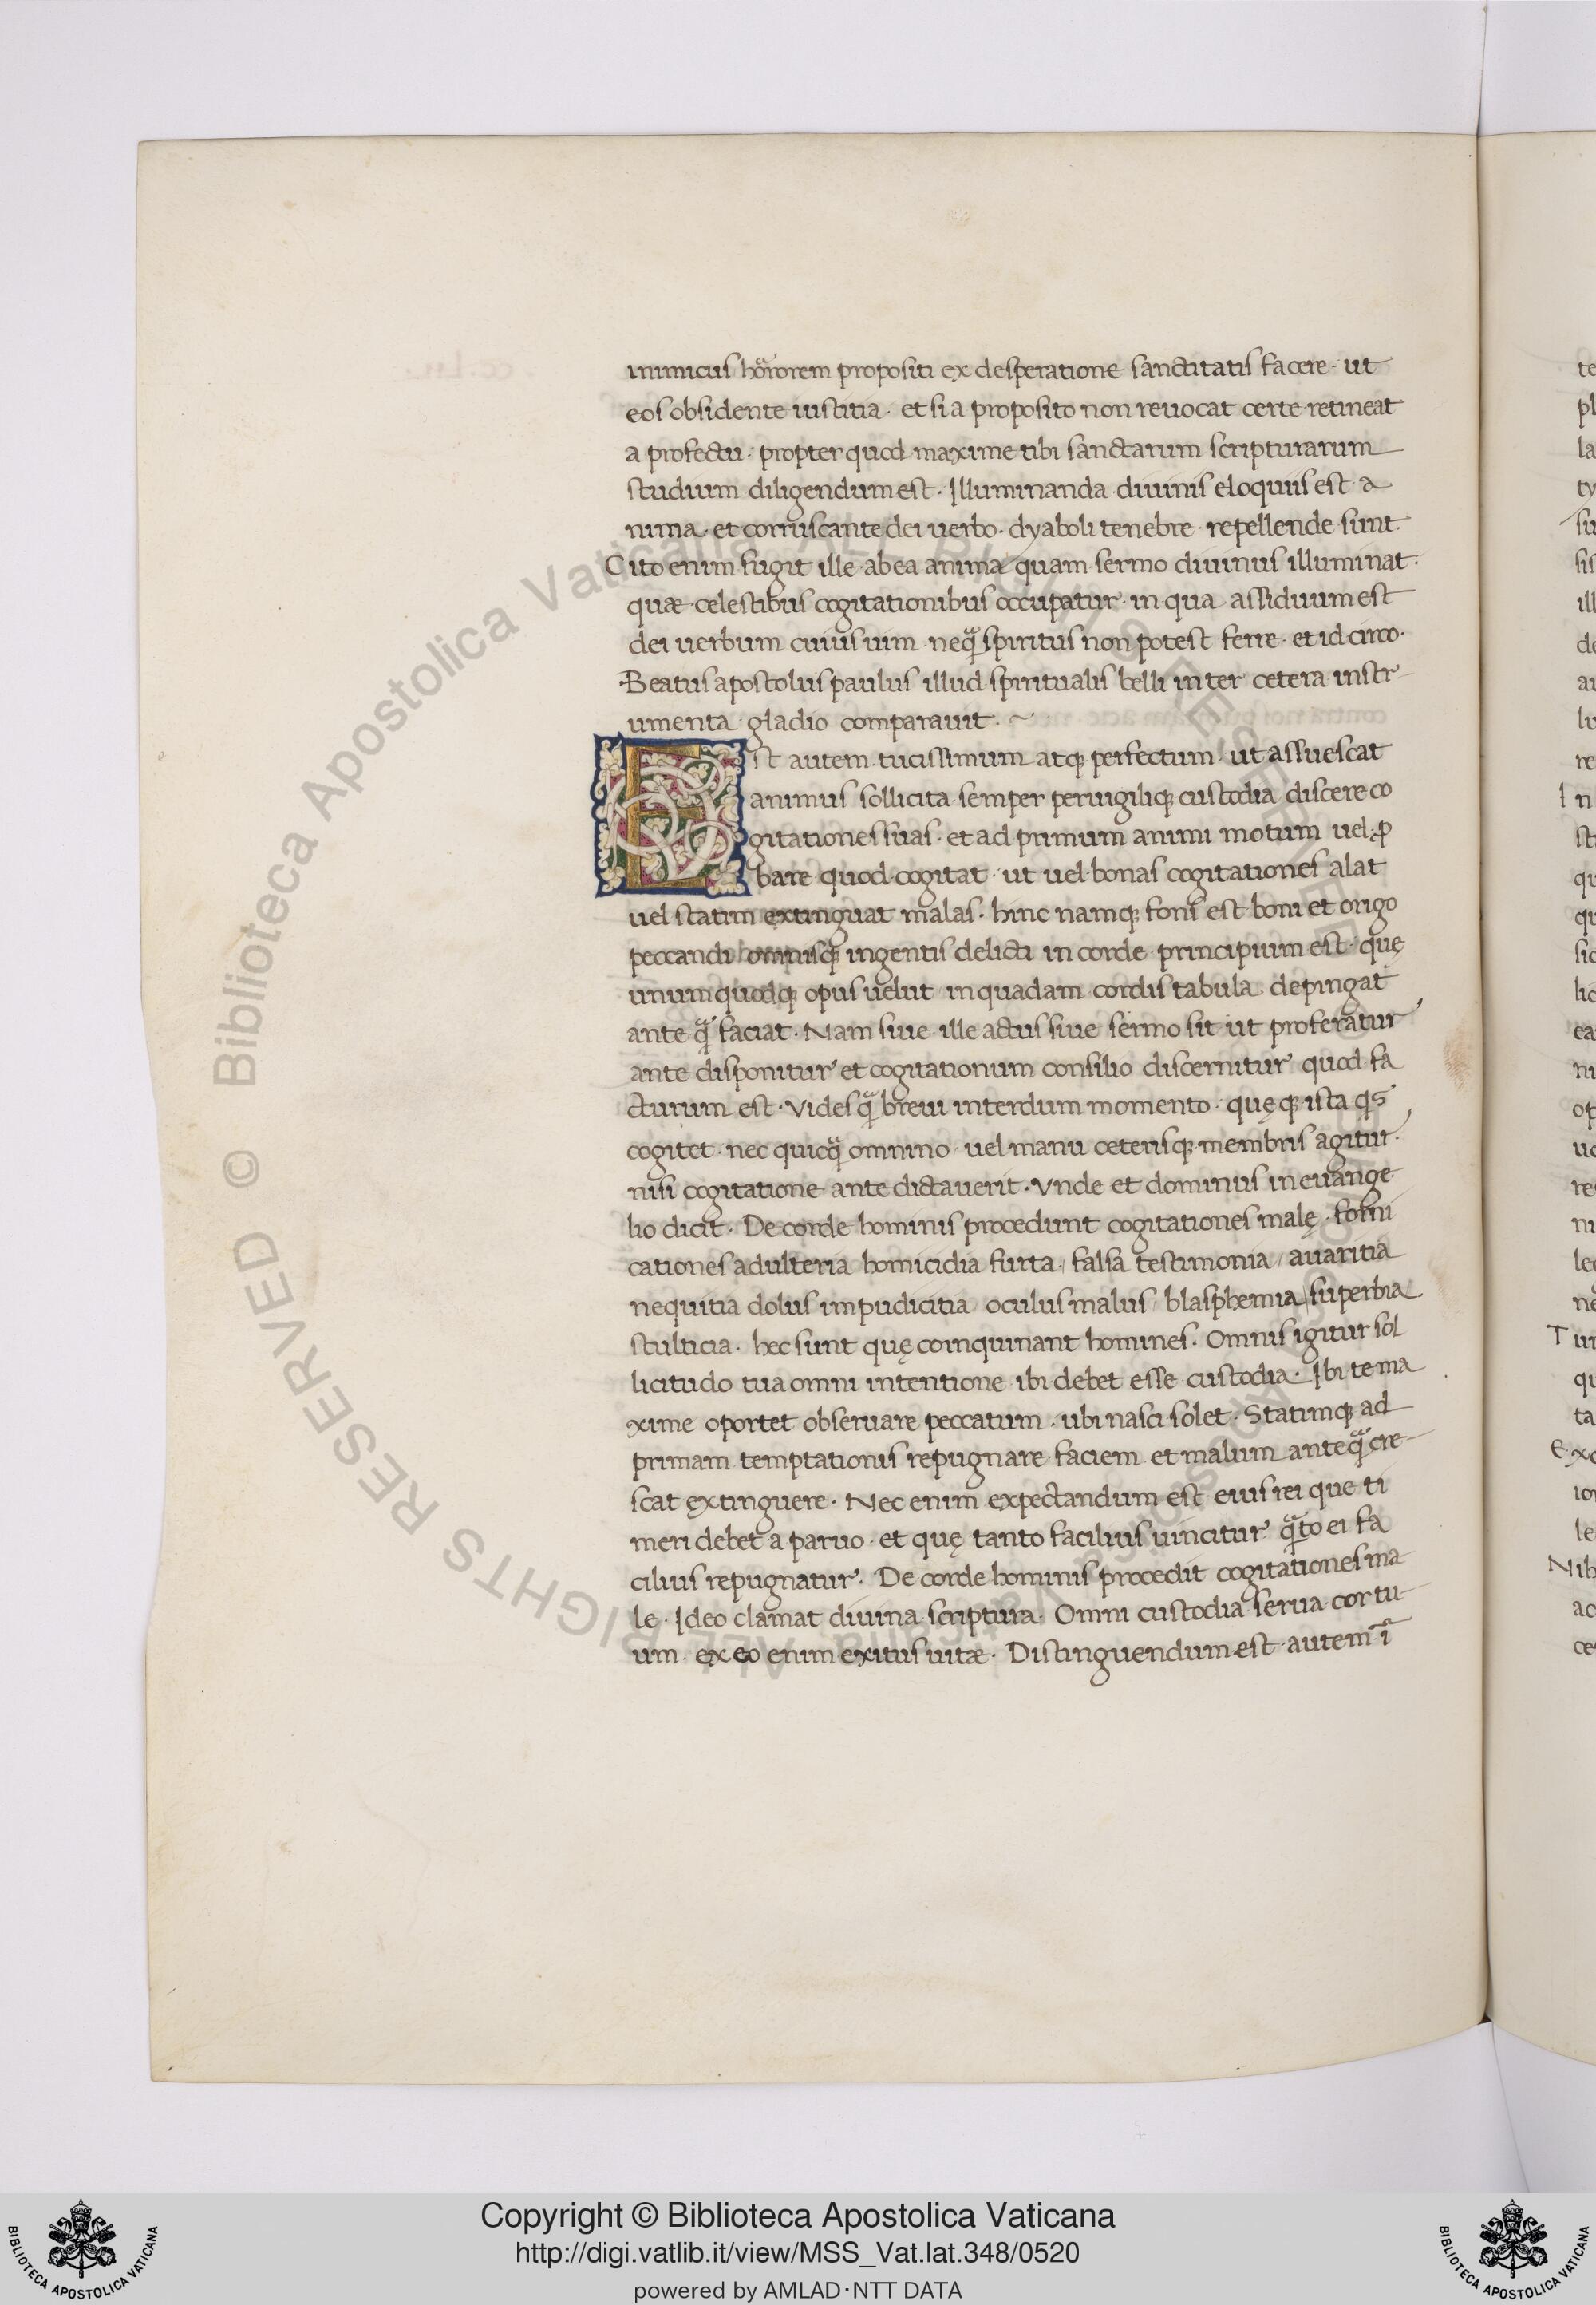 inimicus horrorem propositi ex desperatione sanctitatis facere · ut
eos obsidente iustitia · et si a proposito non reuocat certe retineat
a profectu · propter quod maxime tibi sanctarum scripturarum
studium diligendum est · Illuminanda diuinis eloquiis est a
nima · et corruscante dei uerbo · dyaboli tenebre repellende sunt
Cito enim fugit ille ab ea anima quam sermo diuinus illuminat ·
quae celestibus cogitationibus occupatur · in qua assiduum est
dei uerbum cuius uim neqꝫ spiritus non potest ferre · et id circo ·
Beatus apostolus paulus illud spiritualis belli inter cetera instr
umenta gladio comparauit · ~
Est autem tucissimum atqꝫ perfectum · ut assuescat
animus sollicita semper peruigiliqꝫ custodia discere co
gitationes suas · et ad primum animi motum uel ꝓ
bare quod cogitat · ut uel bonas cogitationes alat
uel statim extinguat malas · hinc namqꝫ fons est boni et origo
peccandi omnisqꝫ ingentis delicti in corde principium est · quę
unum quodqꝫ opus uelut in quadam cordis tabula depingat
ante qᷓ faciat · Nam siue ille actus siue sermo sit ut proferatur
ante disponitur et cogitationum consilio discernitur quod fa
cturum est · Vides qᷓ breui interdum momento · quęqꝫ ista qͥs
cogitet · nec quicqᷓ omnino uel manu ceterisqꝫ membris agitur ·
nisi cogitatione ante dictauerit · Vnde et dominus in euange
lio dicit · De corde hominis procedunt cogitationes malę · forni
cationes adulteria homicidia furta / falsa testimonia / auaritia
nequitia dolus impudicitia oculus malus / blasphemia / superbia
stulticia · hec sunt quę coinquinant homines · Omnis igitur sol
licitudo tua omni intentione ibi debet esse custodia · Ibi te ma
xime oportet obseruare peccatum · ubi nasci solet · Statimqꝫ ad
primam temptationis repugnare faciem et malum anteqᷓ cre
scat extinguere · Nec enim expectandum est eius rei que ti
meri debet a paruo · et quę tanto facilius uincitur qᷓto ei fa
cilius repugnatur · De corde hominis procedit cogitationes ma
le · Ideo clamat diuina scriptura · Omni custodia serua cor tu
um · ex eo enim exitus uitae · Distinguendum est autem ī
te
pl
la
ty
su
sis
ill
de
au
lu
re
In
st
qu
qu
sic
lic
ea
ni
op
uc
re
ni
le
ne
Tu
qu
ta
Exc
io
le
Nih
ac
ce
© Biblioteca Apostolica Vaticana ALL RIGHTS RESERVED
© Biblioteca Apostolica Vaticana ALL RIGHTS RESERVED
BIBLIOTECA APOSTOLICA VATICANA
Copyright © Biblioteca Apostolica Vaticana
http://digi.vatlib.it/view/MSS_Vat.lat.348/0520
powered by AMLAD·NTT DATA
BIBLIOTECA APOSTOLICA VATICANA